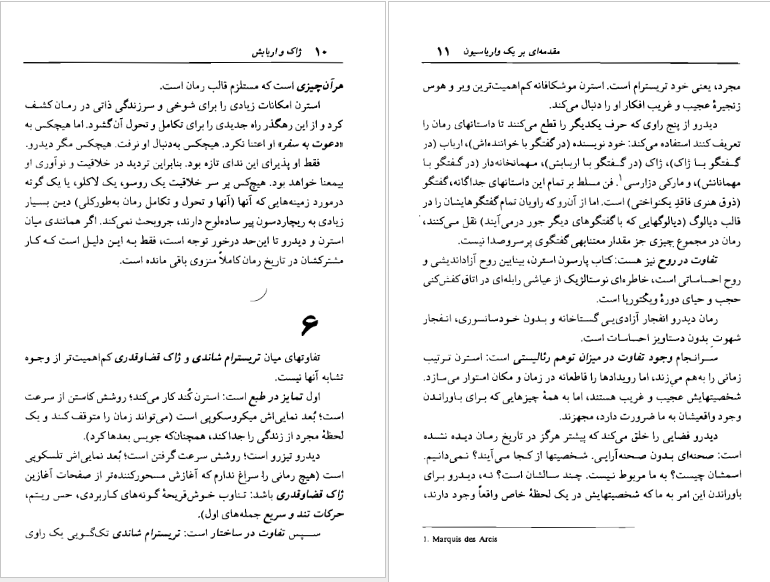 ۱۰ ژاک و اربابش
هرآن‌چیزی است که مستلزم قالب رمان است.
استرن امکانات زیادی را برای شوخی و سرزندگی ذاتی در رمان کشف
کرد و از این رهگذر راه جدیدی را برای تکامل و تحول آن گشود. اما هیچکس به
«دعوت به سفر» او اعتنا نکرد. هیچکس به‌دنبال او نرفت. هیچکس مگر دیدرو.
فقط او پذیرای این ندای تازه بود. بنابراین تردید در خلاقیت و نوآوری او
بیمعنا خواهد بود. هیچ‌کس بر سر خلاقیت یک روسو، یک لاکلو، یا یک گوته
درمورد زمینه‌هایی که (آنها و تحول و تکامل رمان به‌طورکلی) دین بسیار
زیادی به ریچاردسون پیر ساده‌لوح دارند، جروبحث نمی‌کند. اگر همانندی میان
استرن و دیدرو تا این‌حد درخور توجه است، فقط به این دلیل است که کار
مشترکشان در تاریخ رمان کاملاً منزوی باقی مانده است.
۶
تفاوتهای میان تریسترام شاندی و ژاک قضاوقدری کم‌اهمیت‌تر از وجوه
تشابه آنها نیست.
اول تمایز در طبع است: استرن کُند کار می‌کند؛ روشش کاستن از سرعت
است؛ بُعد نمایی‌اش میکروسکوپی است (می‌تواند زمان را متوقف کند و یک
لحظهٔ مجرد از زندگی را جدا کند، همچنان‌که جویس بعدها کرد).
دیدرو تیزرو است؛ روشش سرعت گرفتن است؛ بُعد نمایی‌اش تلسکوپی
است (هیچ رمانی را سراغ ندارم که آغازش مسحورکننده‌تر از صفحات آغازین
ژاک قضاوقدری باشد: تناوب خوش‌قریحهٔ گونه‌های کاربردی، حس ریتم،
حرکات تند و سریع جمله‌های اول).
سپس تفاوت در ساختار است: تریسترام شاندی تک‌گویی یک راوی
مقدمه‌ای بر یک واریاسیون ۱۱
مجرد، یعنی خود تریسترام است. استرن موشکافانه کم‌اهمیت‌ترین ویر و هوس
زنجیرهٔ عجیب و غریب افکار او را دنبال می‌کند.
دیدرو از پنج راوی که حرف یکدیگر را قطع می‌کنند تا داستانهای رمان را
تعریف کنند استفاده می‌کند: خود نویسنده (درگفتگو با خواننده‌اش)، ارباب (در
گفتگو با ژاک)، ژاک (در گفتگو با اربابش)، مهمانخانه‌دار (در گفتگو با
مهمانانش)، و مارکی دزارسی۱. فن مسلط بر تمام این داستانهای جداگانه، گفتگو
(ذوق هنری فاقدِ یکنواختی) است. اما از آن‌رو که راویان تمام گفتگوهایشان را در
قالب دیالوگ (دیالوگهایی که با گفتگوهای دیگر جور درمی‌آیند) نقل می‌کنند،
رمان در مجموع چیزی جز مقدار معتنابهی گفتگوی پرسروصدا نیست.
تفاوت در روح نیز هست: کتاب پارسون استرن، بینابین روح آزاداندیشی و
روح احساساتی است، خاطره‌ای نوستالژیک از عیاشی رابله‌ای در اتاق کفش‌کنی
حجب و حیای دورهٔ ویکتوریا است.
رمان دیدرو انفجار آزادی‌یی گستاخانه و بدون خودسانسوری، انفجار
شهوتِ بدون دستاویز احساسات است.
سرانجام وجود تفاوت در میزان توهم رئالیستی است: استرن ترتیب
زمانی را به‌هم می‌زند، اما رویدادها را قاطعانه در زمان و مکان استوار می‌سازد.
شخصیتهایش عجیب و غریب هستند، اما به همهٔ چیزهایی که برای باوراندن
وجود واقعیشان به ما ضرورت دارد، مجهزند.
دیدرو فضایی را خلق می‌کند که پیشتر هرگز در تاریخ رمان دیده نشده
است: صحنه‌ای بدون صحنه‌آرایی. شخصیتها از کجا می‌آیند؟ نمی‌دانیم.
اسمشان چیست؟ به ما مربوط نیست. چند سالشان است؟ نه، دیدرو برای
باوراندن این امر به ما که شخصیتهایش در یک لحظهٔ خاص واقعاً وجود دارند،
1. Marquis des Arcis